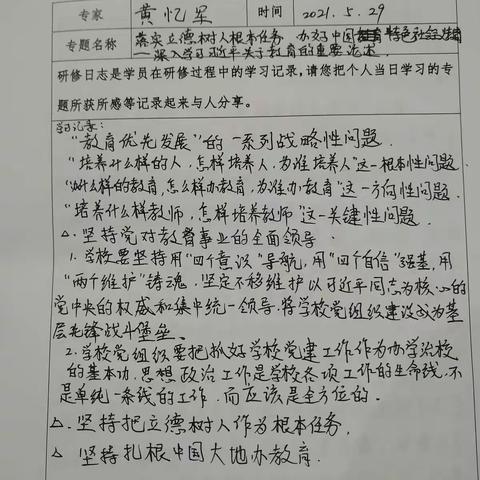 专家 黄忆军 时间 2021.5.29
专题名称 落实立德树人根本任务 办好中国特色社会主义教育
—深入学习习近平关于教育的重要论述
研修日志是学员在研修过程中的学习记录,请您把个人当日学习的专
题所获所感等记录起来与人分享。
学习记录:
"教育优先发展"的一系列战略性问题.
"培养什么样的人,怎样培养人,为谁培养人"这一根本性问题.
"办什么样的教育,怎么样办教育,为谁办教育"这一方向性问题.
"培养什么样教师,怎样培养教师"这一关键性问题.
△.坚持党对教育事业的全面领导.
1.学校要坚持用"四个意识"导航,用"四个自信"强基,用
"两个维护"铸魂.坚定不移维护以习近平同志为核心的
党中央的权威和集中统一领导.将学校党组织建设成为基
层先锋战斗堡垒.
2.学校党组织要把抓好学校党建工作作为办学治校
的基本功.思想政治工作是学校各项工作的生命线.不
是单纯一条线的工作.而应该是全方位的.
△.坚持把立德树人作为根本任务.
△ 坚持扎根中国大地办教育.